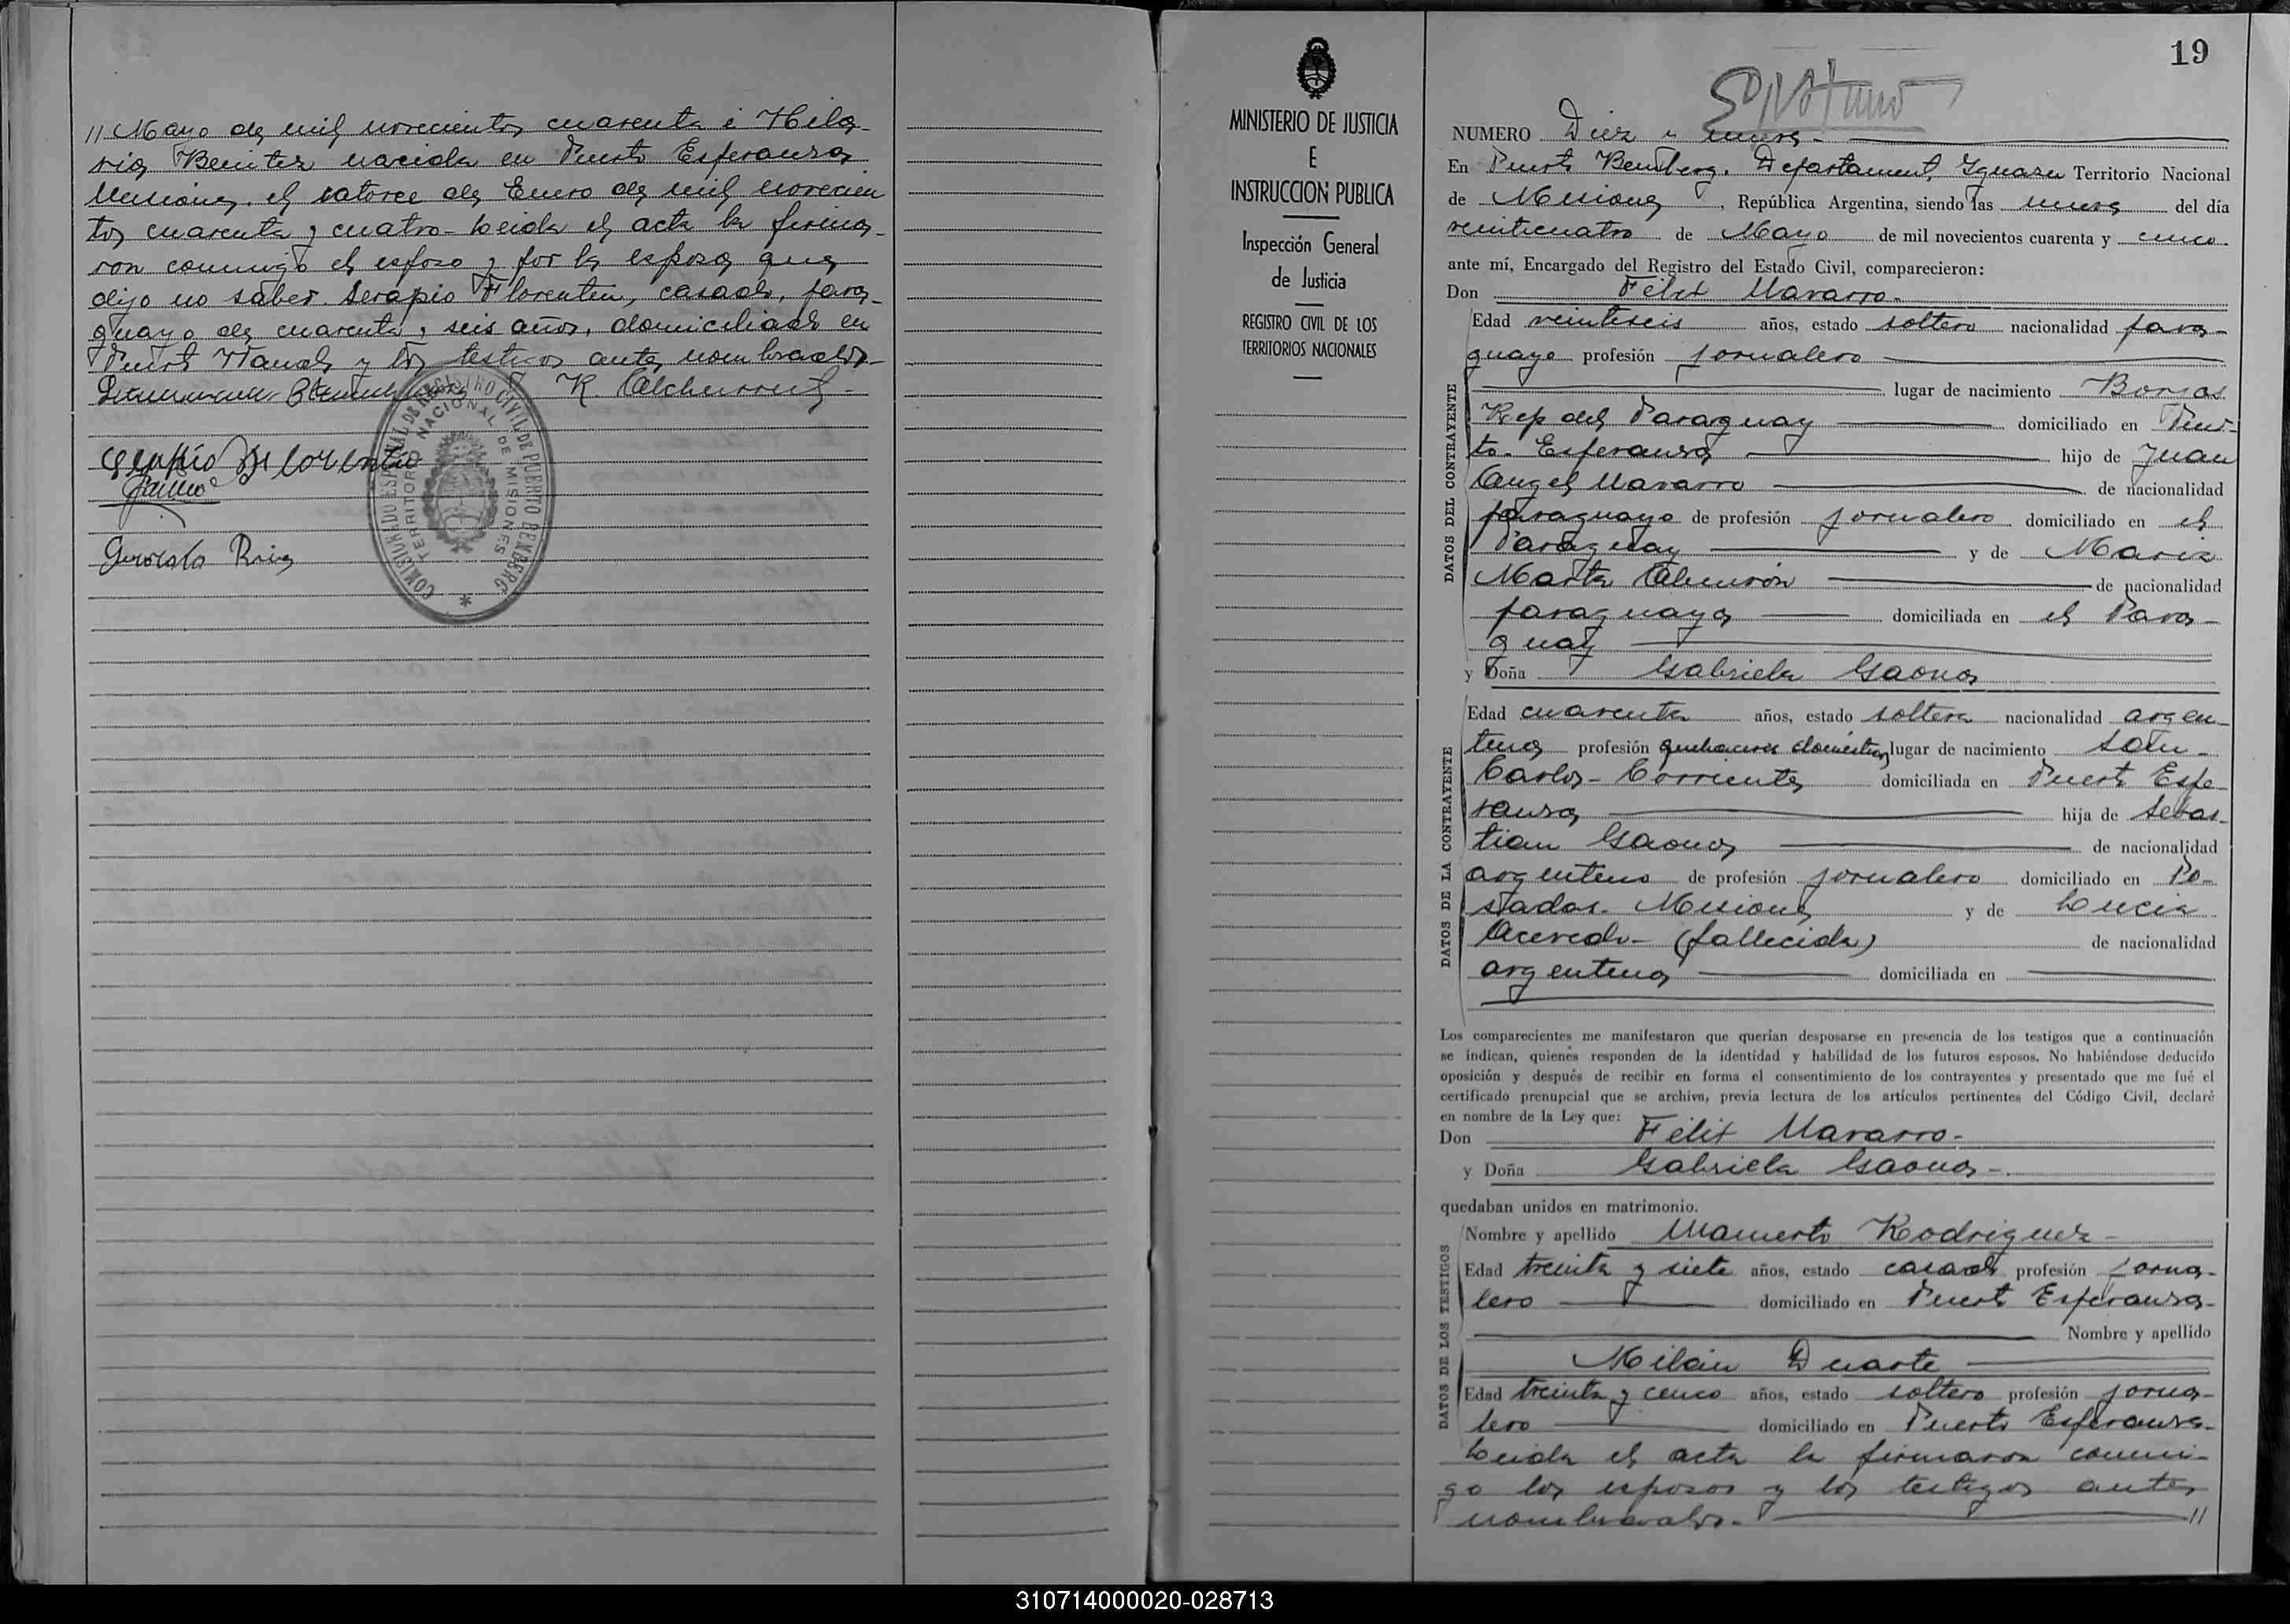 // Mayo de mil novecientos cuarenta i Hila-
ria Benitez nacida en Puerto Esperanza
Misiones. el catorce de Enero de mil novecien
tos cuarenta y cuatro - Leida el acta la firma-
ron conmigo el esposo y por la esposa que
dijo no saber. Serapio Florentin, casado, para-
guayo de cuarenta y seis años, domiciliado en
Puerto y los testigos antes nombrados -
Serapio Florentin
Gervasio Rios
COMISIONADO ESPECIAL DE REGISTRO CIVIL DE PUERTO BEMBERG
TERRITORIO NACIONAL DE MISIONES
MINISTERIO DE JUSTICIA
E
INSTRUCCION PUBLICA
Inspección General
de Justicia
REGISTRO CIVIL DE LOS
TERRITORIOS NACIONALES
19
NUMERO Diez y nueve -
En Puerto Bemberg. Departamento Iguazu Territorio Nacional
de Misiones, República Argentina, siendo las nueve del día
veinticuatro de Mayo de mil novecientos cuarenta y cinco.
ante mí, Encargado del Registro del Estado Civil, comparecieron:
Don Felix Navarro -
DATOS DEL CONTRAYENTE
Edad veintiseis años, estado soltero nacionalidad para-
guayo profesión jornalero
lugar de nacimiento Borjas
Rep del Paraguay domiciliado en Puer-
to. Esperanza hijo de Juan
Angel Navarro de nacionalidad
paraguayo de profesión jornalero domiciliado en el
Paraguay y de Maria
Marta de nacionalidad
paraguaya domiciliada en el Para-
guay
y Doña Gabriela Gaona
DATOS DE LA CONTRAYENTE
Edad cuarenta años, estado soltera nacionalidad argen-
tina profesión quehaceres domésticos lugar de nacimiento San
Carlos - Corrientes domiciliada en Puerto Espe-
ranza hija de Sebas-
tian Gaona de nacionalidad
argentino de profesión jornalero domiciliado en Po-
sadas. Misiones y de Lucia
Acevedo - (fallecida) de nacionalidad
argentina domiciliada en
Los comparecientes me manifestaron que querían desposarse en presencia de los testigos que a continuación
se indican, quienes responden de la identidad y habilidad de los futuros esposos. No habiéndose deducido
oposición y después de recibir en forma el consentimiento de los contrayentes y presentado que me fué el
certificado prenupcial que se archiva, previa lectura de los artículos pertinentes del Código Civil, declaré
en nombre de la Ley que:
Don Felix Navarro -
y Doña Gabriela Gaona -
quedaban unidos en matrimonio.
DATOS DE LOS TESTIGOS
Nombre y apellido Mamerto Rodriguez -
Edad treinta y siete años, estado casado profesión jorna-
lero domiciliado en Puerto Esperanza -
Nombre y apellido
Milán Duarte
Edad treinta y cinco años, estado soltero profesión jorna-
lero domiciliado en Puerto Esperanza -
Leida el acta la firmaron conmi-
go los esposos y los testigos antes
nombrados. - //
310714000020-028713